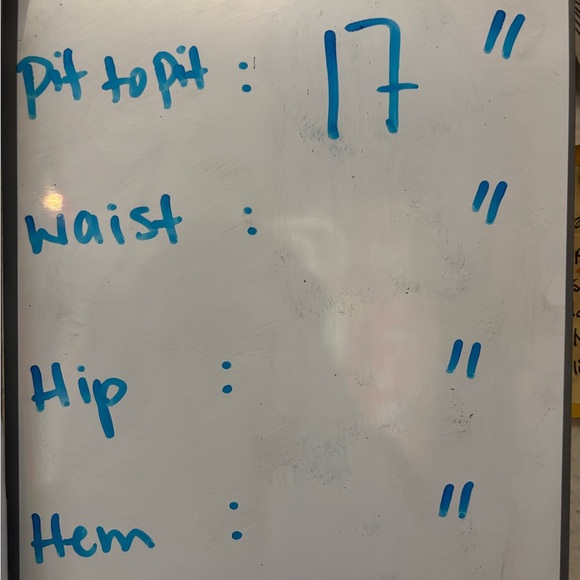 Pit to Pit : 17 "
Waist : "
Hip : "
Hem : "